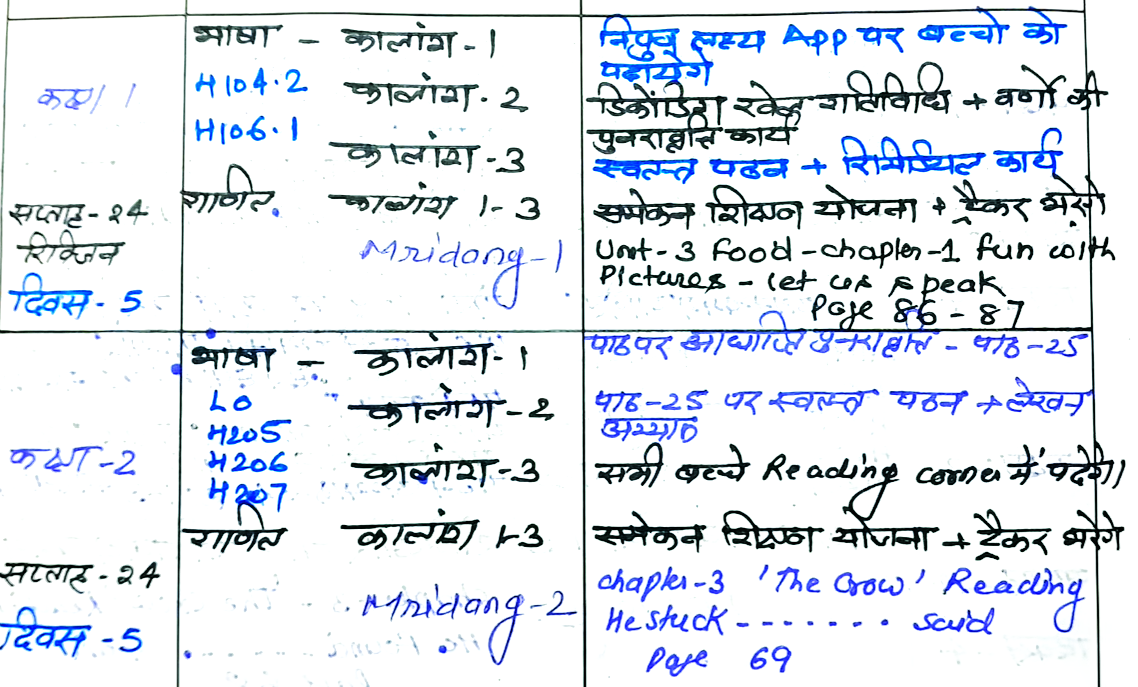 भाषा - कालांश - 1
निपुण लक्ष्य App पर बच्चो को
पढ़ायेगे
कक्षा 1
H104.2
कालांश - 2
डिकोडिंग खेल गतिविधि + वर्णो की
पुनरावृत्ति कार्य
H106.1
कालांश - 3
स्वतन्त्र पठन + रिमिडियल कार्य
सप्ताह - 24
रिविजन
दिवस - 5
गणित
कालांश 1-3
समेकन शिक्षण योजना + ट्रैकर भरेंगे
Mridang-1
Unit-3 Food - chapter-1 fun with
Pictures - let us speak
Page 86-87
भाषा - कालांश - 1
पाठ पर आधारित पुनरावृत्ति - पाठ-25
LO
H205
H206
H207
कालांश - 2
पाठ-25 पर स्वतन्त्र पठन + लेखन
अभ्यास
कक्षा-2
कालांश - 3
सभी बच्चे Reading corner में पढेंगे।
गणित
कालांश 1-3
समेकन शिक्षण योजना + ट्रैकर भरेंगे
सप्ताह - 24
दिवस - 5
Mridang-2
chapter-3 'The Crow' Reading
He stuck - - - - - - - said
Page 69